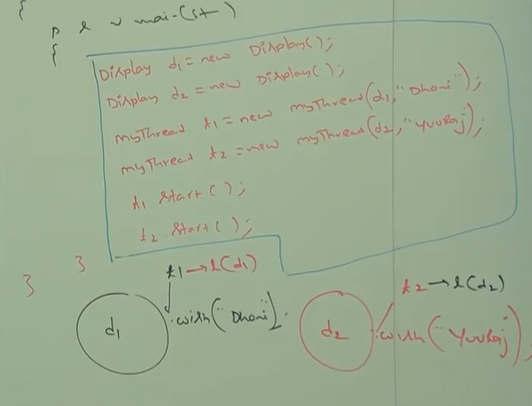 {
p s v mai-(st-)
{
Display d1 = new Display();
Display d2 = new Display();
myThread t1 = new myThread(d1, "Dhoni");
myThread t2 = new myThread(d2, "Yuvraj");
t1 start();
t2 start();
}
}
t1 → l(d1)
t2 → l(d2)
d1 . wish("Dhoni").
d2 . wish("Yuvraj");